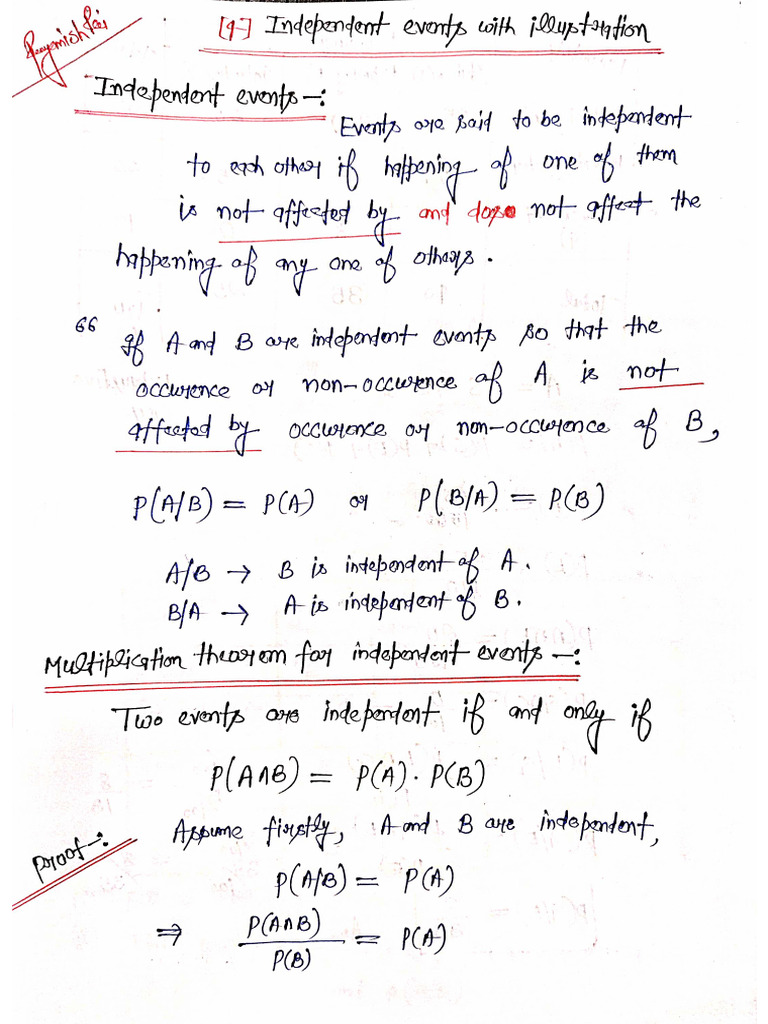 [9] Independent events with illustration
Independent events -:
Events are said to be independent
to each other if happening of one of them
is not affected by and does not affect the
happening of any one of others.
66
If A and B are independent events so that the
occurence or non-occurence of A is not
affected by occurence or non-occurence of B,
P(A/B) = P(A) or P(B/A) = P(B)
A/B → B is independent of A.
B/A → A is independent of B.
Multiplication theorem for independent events -:
Two events are independent if and only if
P(A∩B) = P(A) · P(B)
Proof -: Assume firstly, A and B are independent,
P(A/B) = P(A)
⇒ P(A∩B) / P(B) = P(A)